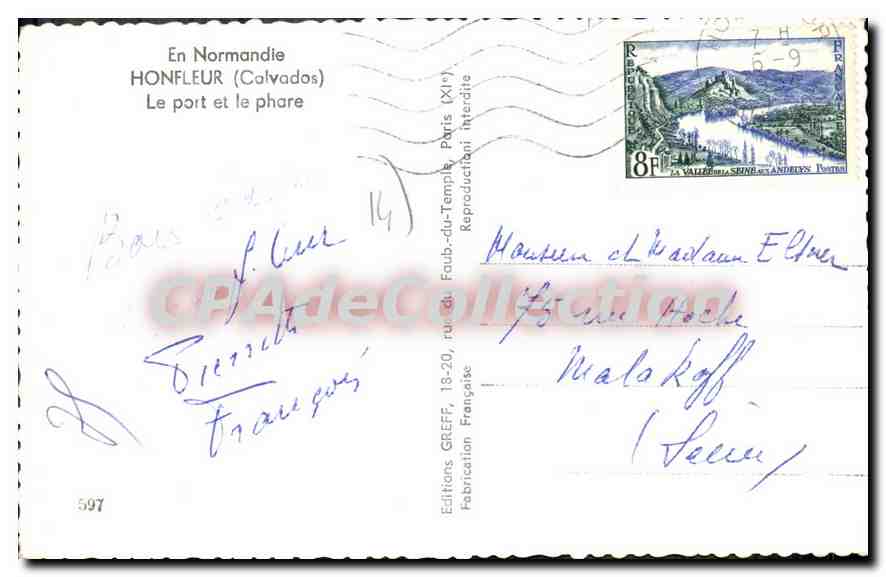 En Normandie
HONFLEUR (Calvados)
Le port et le phare
14
Pierrette
François
597
Editions GREFF, 18-20, rue du Faub.-du-Temple, Paris (XIe)
Fabrication Française
Reproduction interdite
7 H
6-9
RÉPUBLIQUE
FRANÇAISE
8F
LA VALLÉE DE LA SEINE AUX ANDELYS
POSTES
Monsieur et Madame Eltner
75 rue Hoche
Malakoff
(Seine)
CPAdeCollection